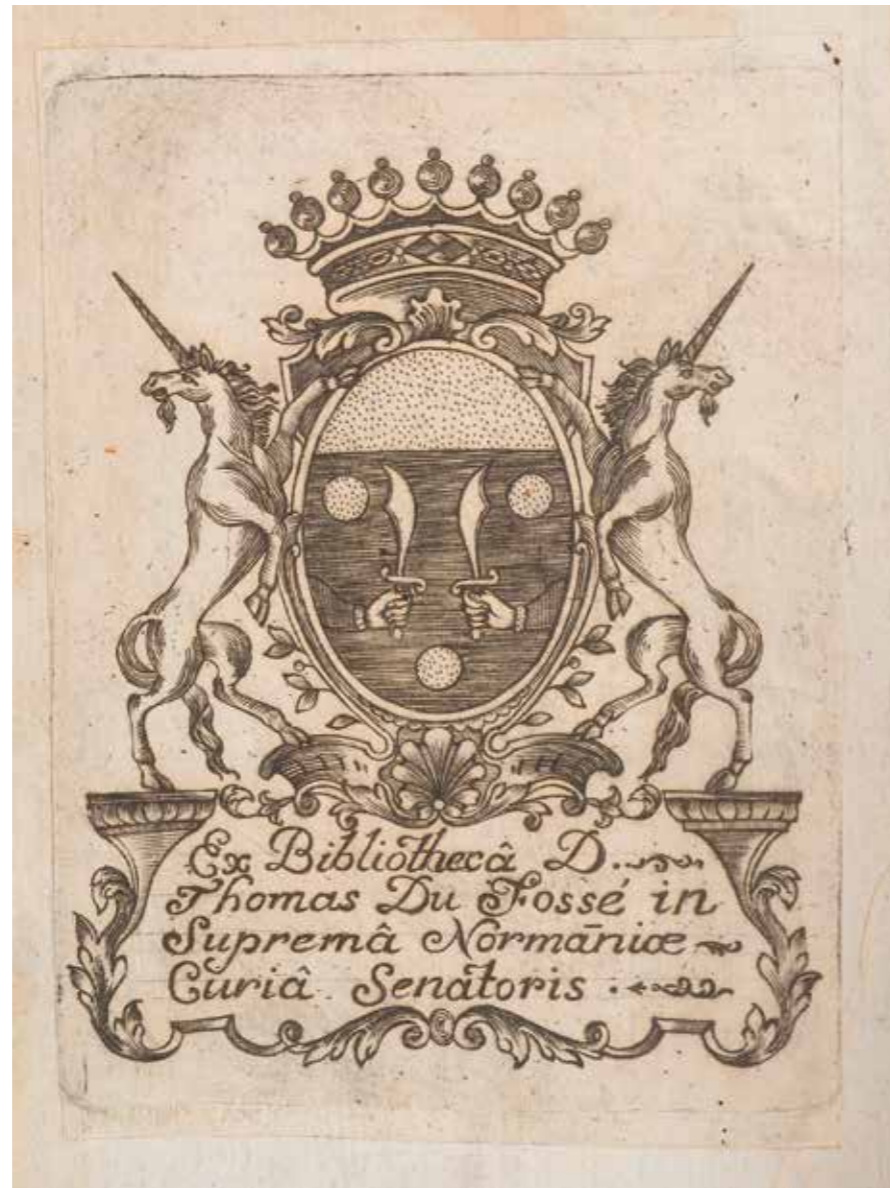 Ex Bibliothecâ D.
Thomas Du Fossé in
Supremâ Normāniæ
Curiâ Senatoris.